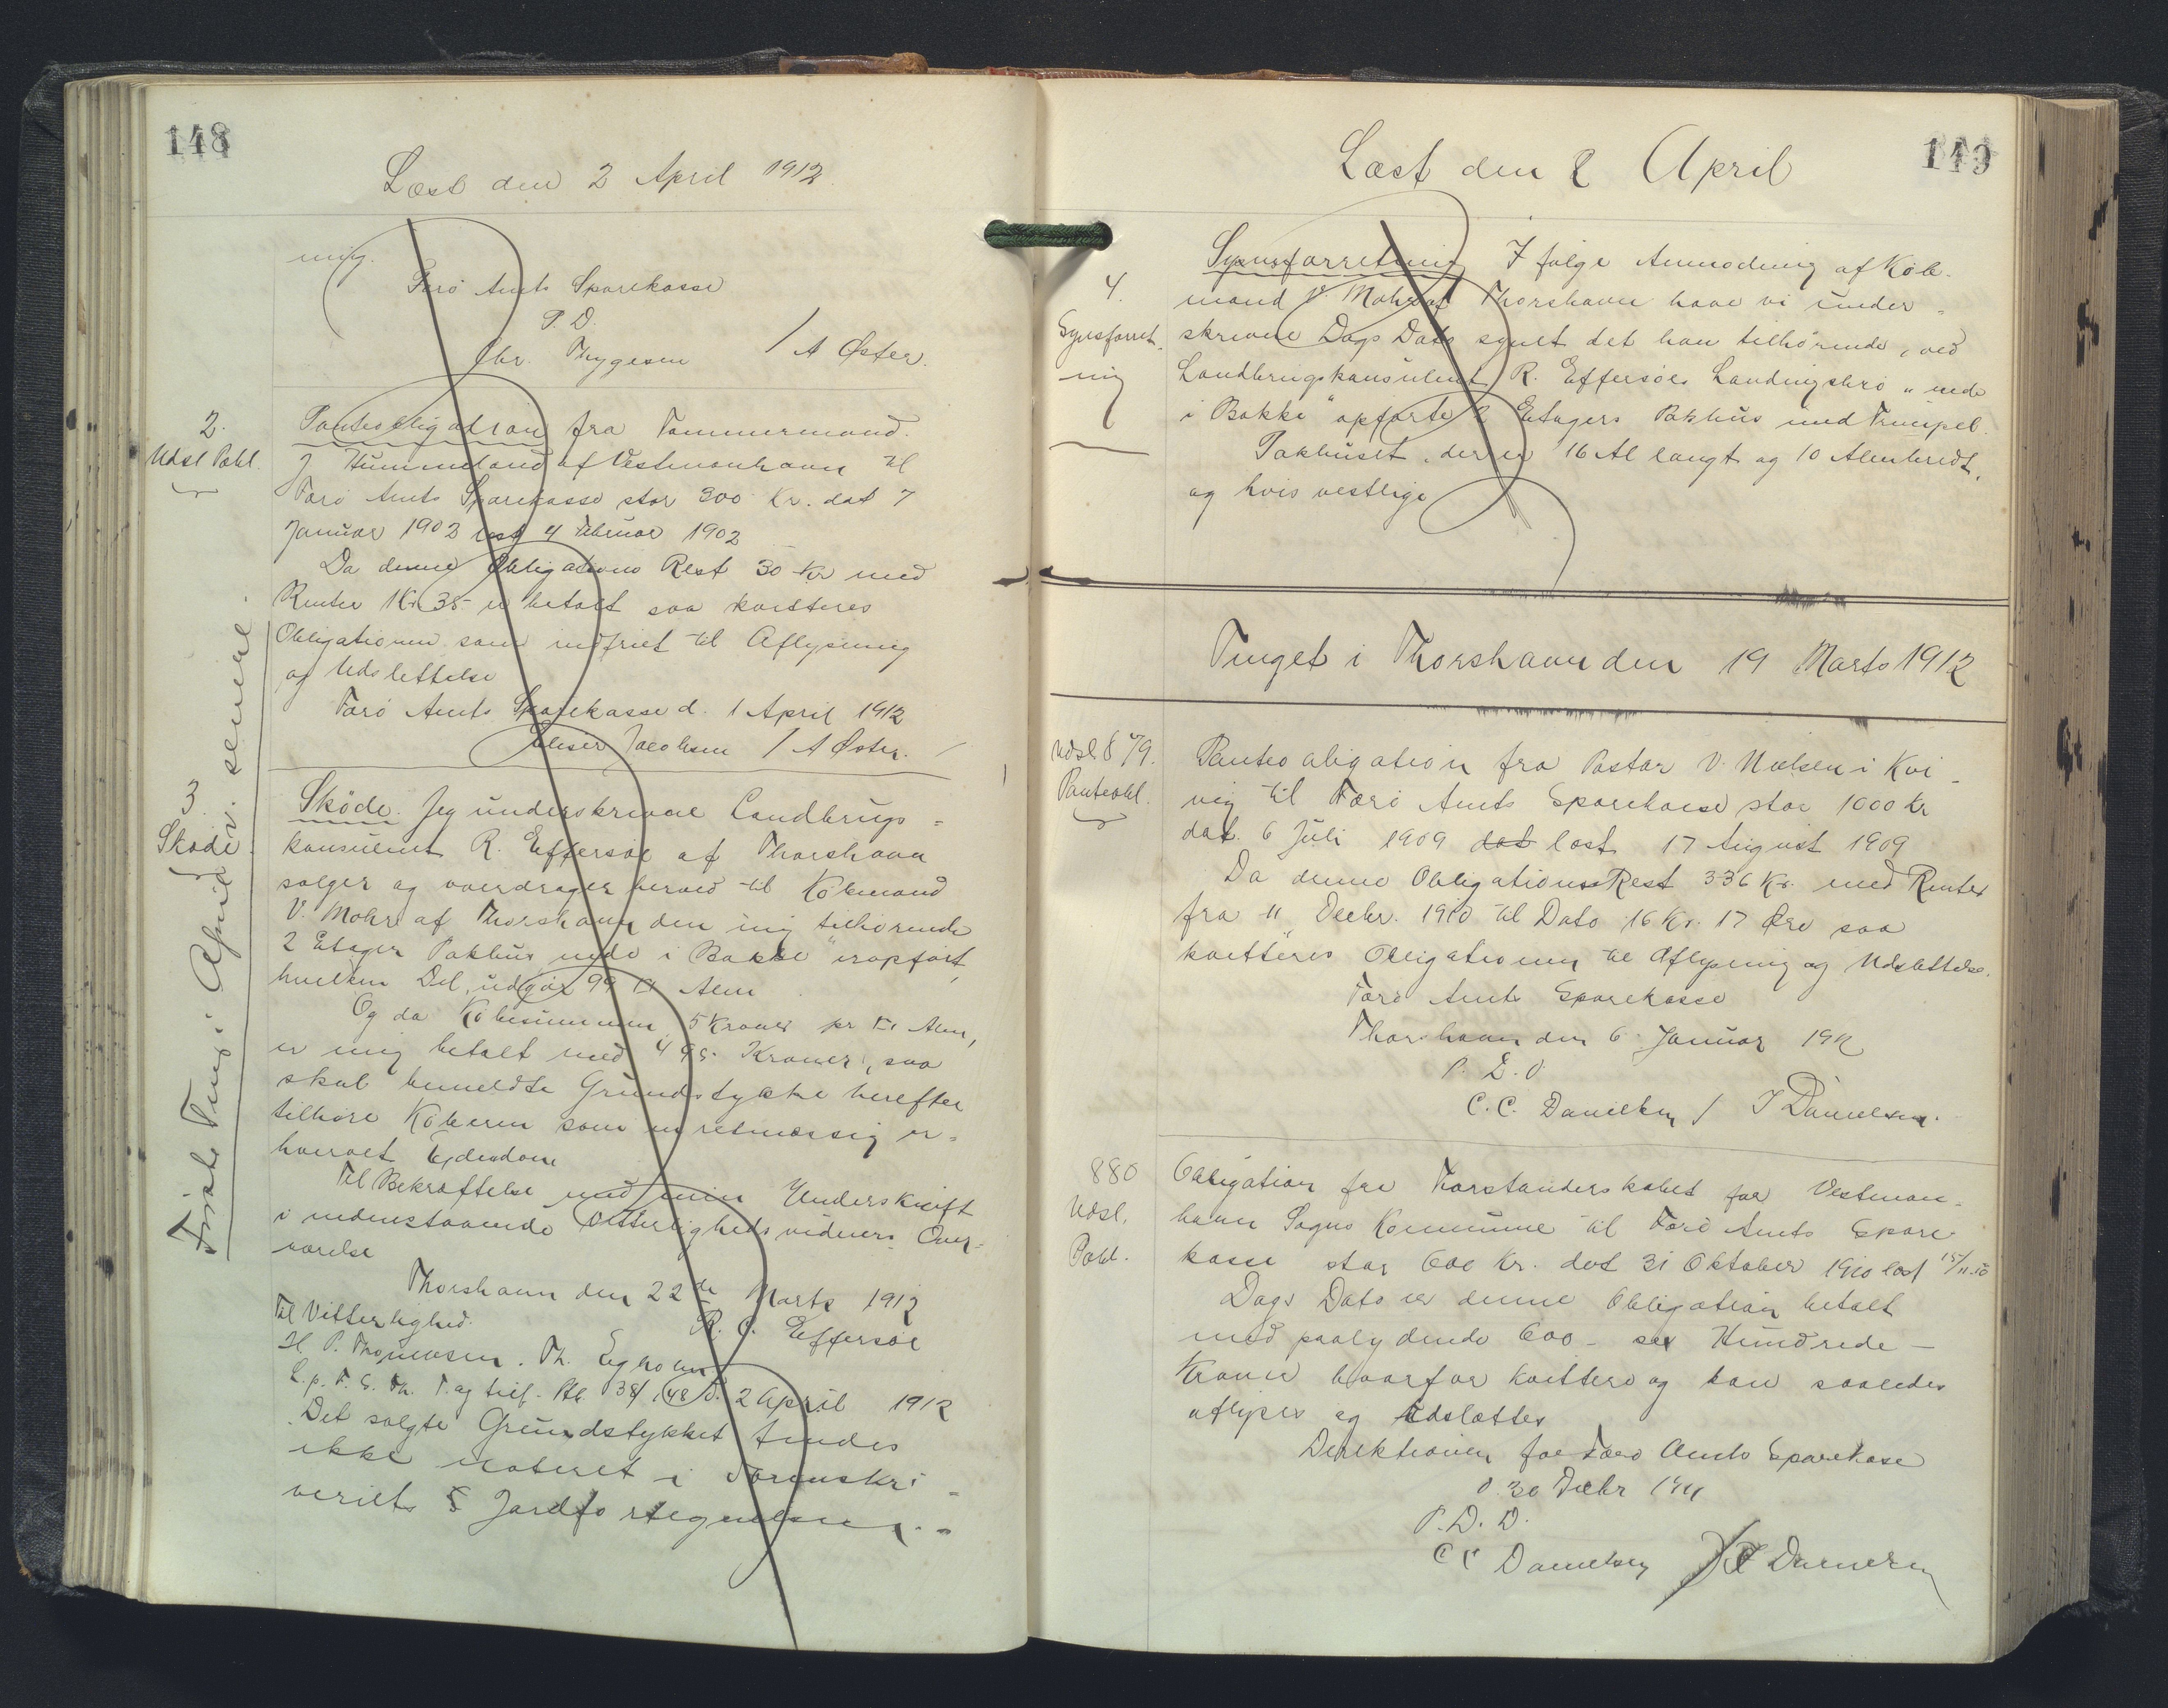 148
Læst den 2 April 1912
mig.
Færö Amts Sparekasse
P. D.
Chr. Thygesen / A Øster.
2.
Udsl Pobl.
Panteobligation fra Tømmermand
J Hummeland af Vestmanhavn til
Færö Amts Sparekasse stor 300 Kr. dat 7
Januar 1902 læst 4 Februar 1902
Da denne Obligations Rest 30 Kr med
Renter 1 Kr 35 er betalt saa kvitteres
Obligationen som indfriet til Aflysning
og Udslettelse
Færö Amts Sparekasse d. 1 April 1912
Jacobsen / A Øster.
3
Skøde
Skøde. Jeg underskrevne Landbrugs=
konsulent R. Effersøe af Thorshavn
sælger og overdrager herved til Købmand
V. Mohr af Thorshavn den mig tilhørende
2 Etager Pakhus nede i Bakke" iropført,
hvilken Del, udgør 99 □ Alen
Og da Købesummen 5 Kroner pr □ Alen,
er mig betalt med 495 Kroner, saa
skal bemeldte Grundstykke herefter
tilhøre Køberen som en retmæssig er=
hvervet Ejendom
Til Bekræftelse med min Underskrift
i nedenstaaende Vitterlighedsvidners Over=
værelse
Thorshavn den 22de Marts 1912
Til Vitterlighed. R. C. Effersøe
H. P. Thomasen. Th. Egholm
2 April 1912
Det solgte Grundstykket findes
ikke noteret i Sorenskri=
veriets § Jordfortegnelsen.-
149
Læst den 2 April
4.
Synsforret-
ning
Synsforretning I følge Anmodning af Køb-
mand V. Mohr af Thorshavn have vi under=
skrevne Dags Dato synet det ham tilhørende, ved
Landbrugskonsulent R. Effersøes Landingsbro "nede
i Bakke" opførte 2 Etagers Pakhus med Trempel.
Pakhuset, der er 16 Al langt og 10 Alen bredt,
og hvis vestlige
Tinget i Thorshavn den 19 Marts 1912
Udsl 879.
Panteobl.
Panteobligation fra Pastor V. Nielsen i Kvi-
vig til Færö Amts Sparekasse stor 1000 Kr
dat. 6 Juli 1909 dat læst 17 August 1909
Da denne Obligations Rest 336 Kr. med Renter
fra 11 Decbr. 1910 til Dato 16 Kr. 17 Øre saa
kvitteres Obligationen til Aflysning og Udslettelse.
Færö Amts Sparekasse
Thorshavn den 6 Januar 1912
P. D. V.
C. C. Danielsen / J Danielsen.
880
Udsl.
Pobl.
Obligation fra Forstanderskabet for Vestman-
havn Sogns Kommune til Færö Amts Spare
kasse stor 600 Kr. dat 31 Oktober 1910 læst 15/11.10
Dags Dato er denne Obligation betalt
med paalydende 600 - sex Hundrede -
Kroner hvorfor kvittere og kan saaledes
aflyses og Udslettes
Direktionen for Færö Amts Sparekasse
d. 30 Decbr 1911
P. D. D.
C C Danielsen / J Danielsen